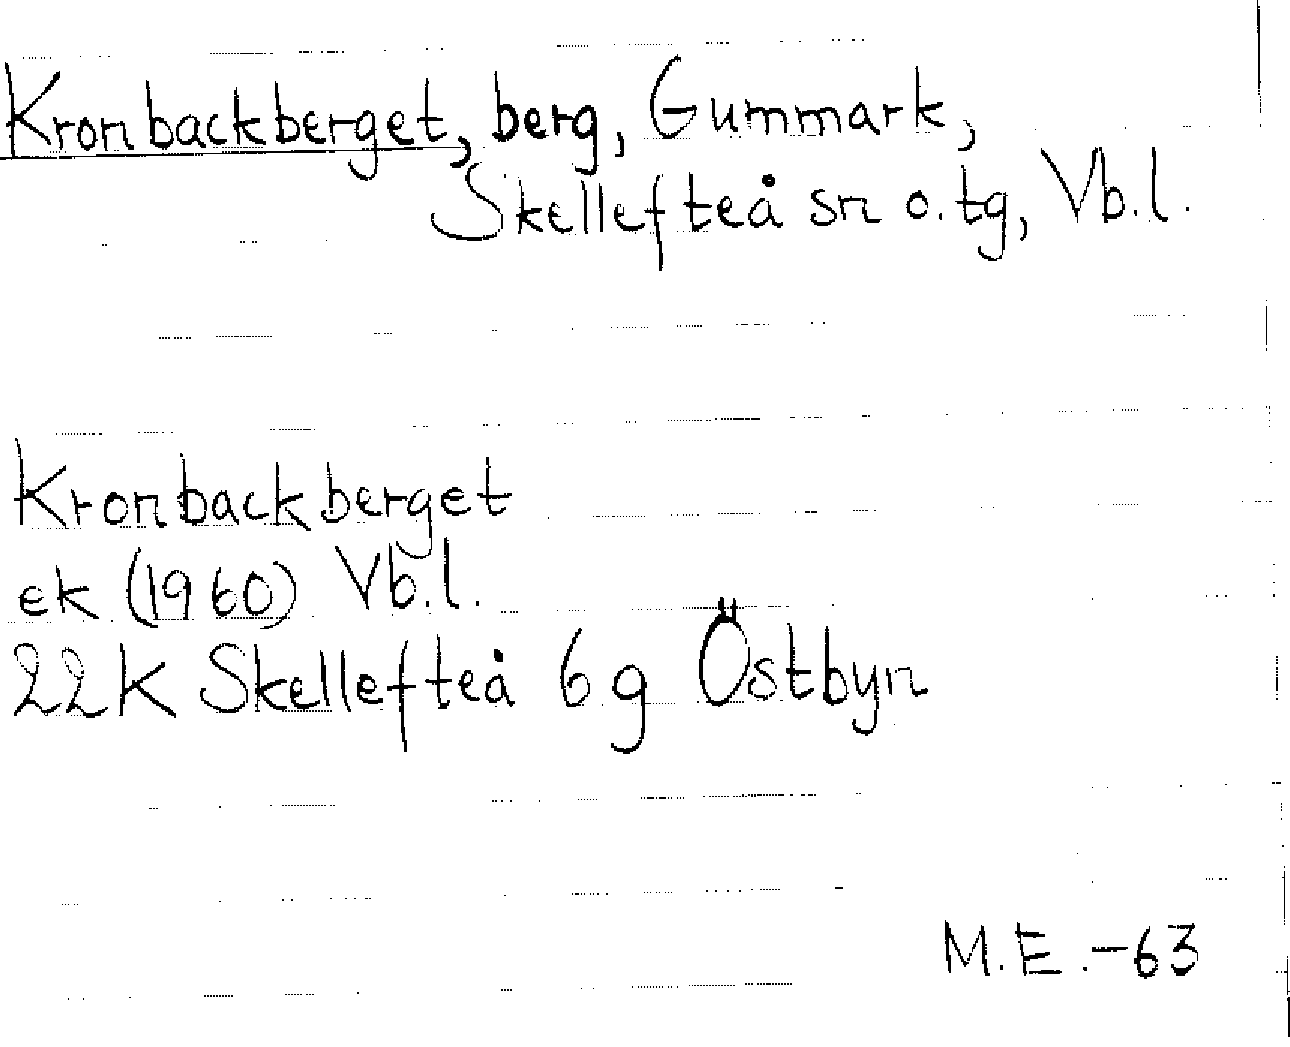 Kronbackberget, berg, Gummark,
Skellefteå sn o. tg, Vb.l.
Kronbackberget
ek (1960) Vb.l.
22K Skellefteå 6g Östbyn
M.E.-63